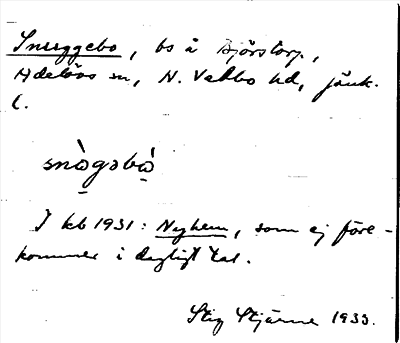 Snuggebo, bs å Björstorp.,
Adelövs sn, N. Vedbo hd, jönk.
l.
snògəbò̤
I kb 1931: Nyhem, som ej före-
kommer i dagligt tal.
Stig Stjärne 1933.